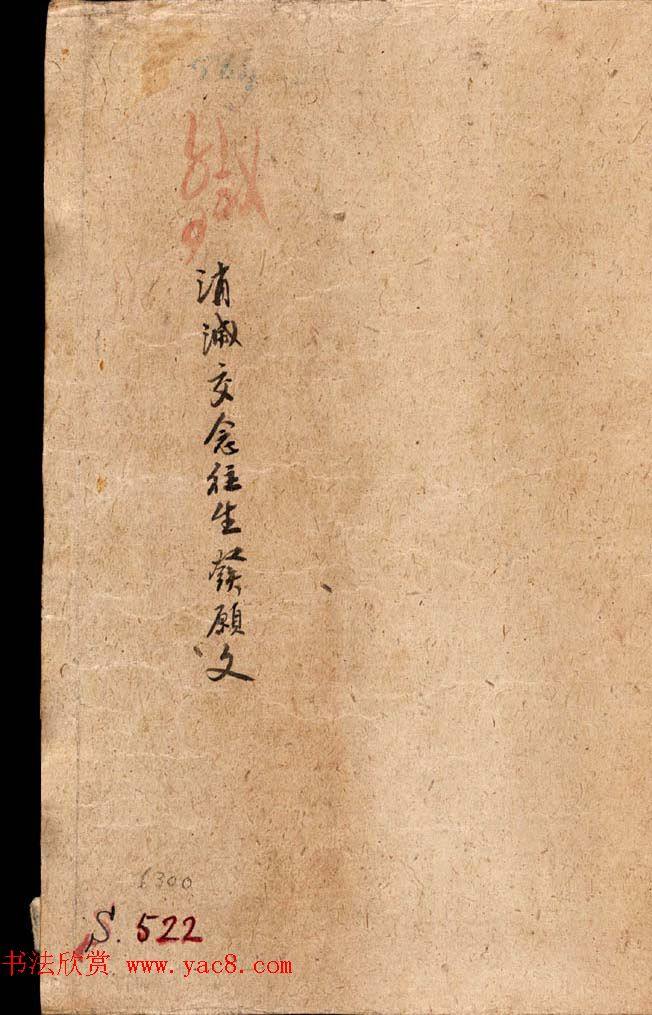 消滅交念往生發願文
6300
S. 522
书法欣赏 www.yac8.com